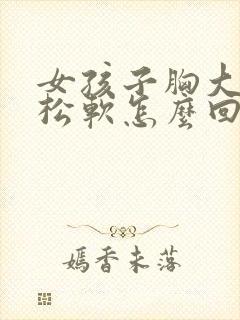 女孩子胸大
松軟怎麼回
嫣香未落